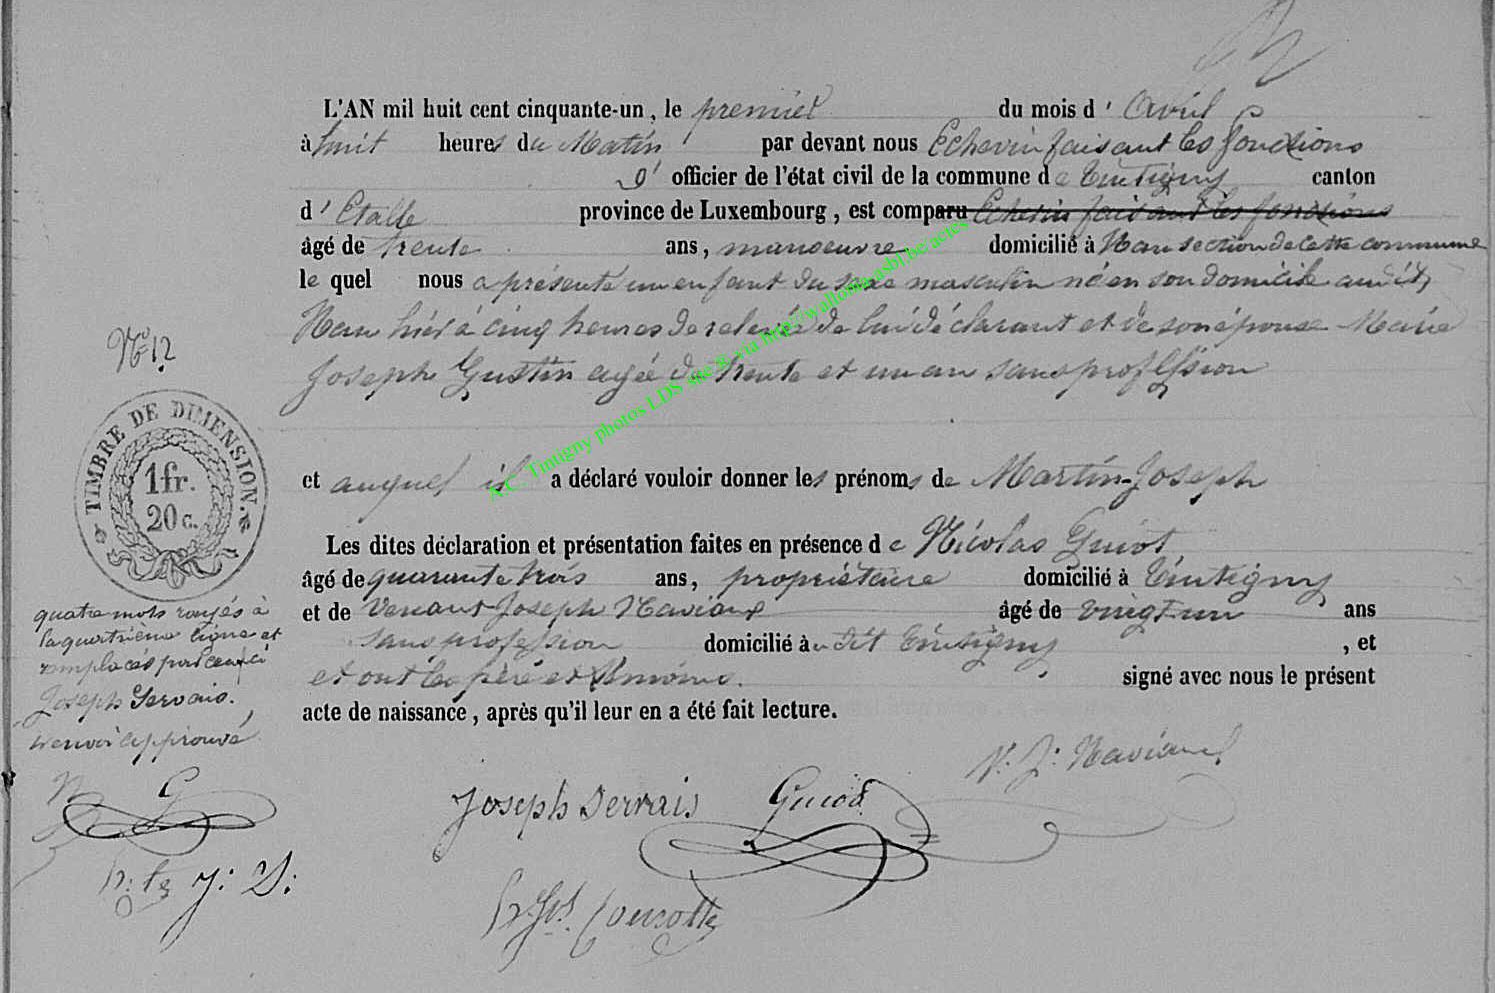 L'AN mil huit cent cinquante-un, le premier du mois d' Avril
à huit heures du Matin par devant nous Echevin faisant les fonctions
d' officier de l'état civil de la commune de Tintigny canton
d' Etalle province de Luxembourg, est comparu Echevin faisant les fonctions
âgé de trente ans, manoeuvre domicilié à Han section de cette commune
le quel nous a présenté un enfant du sexe masculin né en son domicile audit
Han hier à cinq heures de relevée de lui déclarant et de son épouse Marie
Joseph Gustin agée de trente et un an sans proffession
et auquel il a déclaré vouloir donner les prénoms de Martin-Joseph
Les dites déclaration et présentation faites en présence de Nicolas Guiot
âgé de quarante trois ans, propriétaire domicilié à Tintigny
et de Venant Joseph Naviaux âgé de vingt un ans
sans profession domicilié à u dit Tintigny, et
et ont les père et témoins. signé avec nous le présent
acte de naissance, après qu'il leur en a été fait lecture.
N° 12
TIMBRE DE DIMENSION.
1 fr.
20 c.
quatre mots rayés à
la quatrième ligne et
remplacés par ceux ci
Joseph Servais.
renvoi approuvé
N G
J: S:
Joseph Servais Guiot V. J. Naviaux
A.C. Tintigny photos LDS site & via http://wallonia.asbl.be/actes